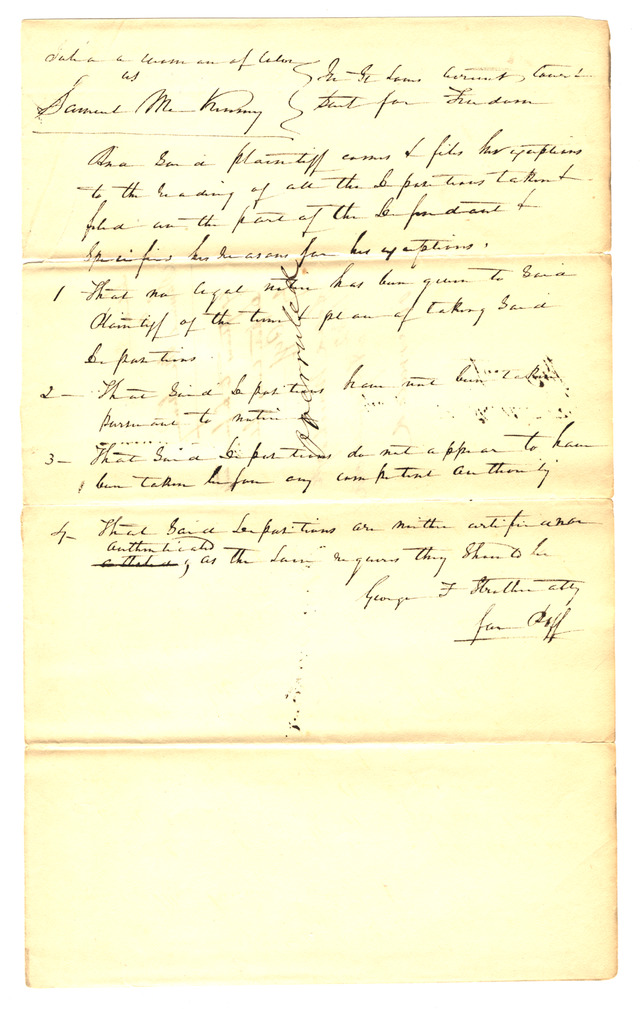 Julia a woman of Color
vs
Samuel McKinney
In St Louis Circuit Court
Suit for Freedom
And Said plaintiff comes & files her exceptions
to the reading of all the Depositions taken &
filed on the part of the Defendant &
Specifies her reasons for her exceptions.
1 That no legal notice has been given to Said
Plaintiff of the time & place of taking Said
Depositions
2 – That Said Depositions have not been taken
pursuant to notice
3 – That Said Depositions do not appear to have
been taken before any competent Authority
4 – That Said Depositions are neither certified nor
authenticated
, as the Law requires they Should be
George F Strother atty
for Plff
overruled